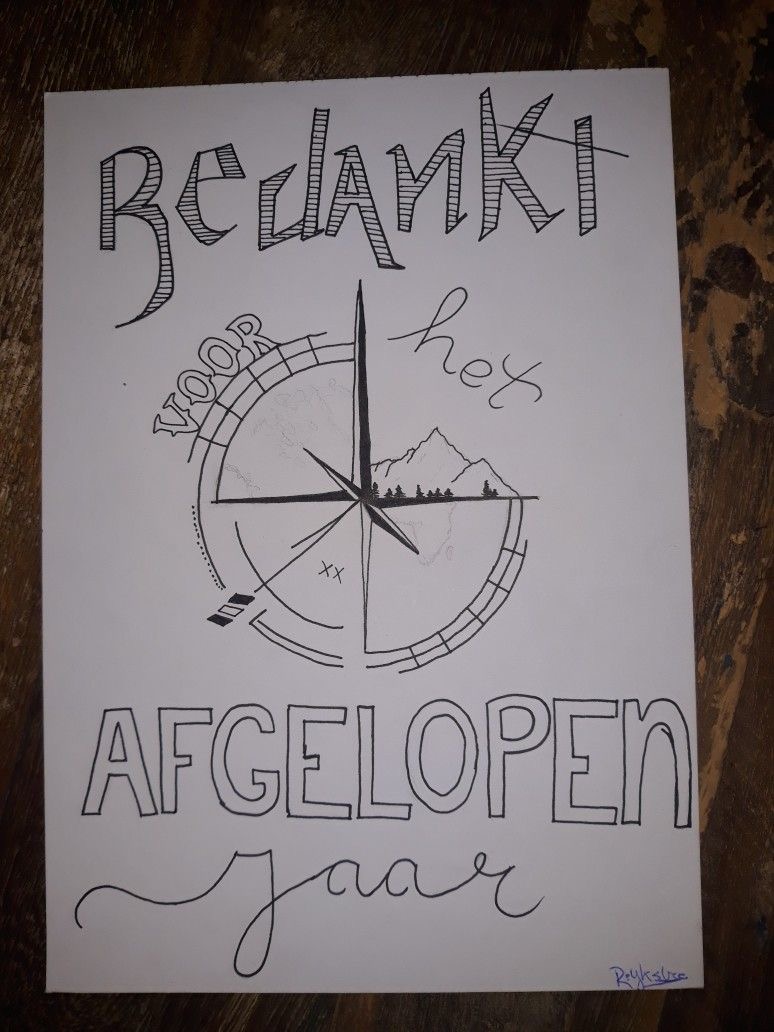 BedANKt
VOOR
het
xx
AFGELOPEN
jaar